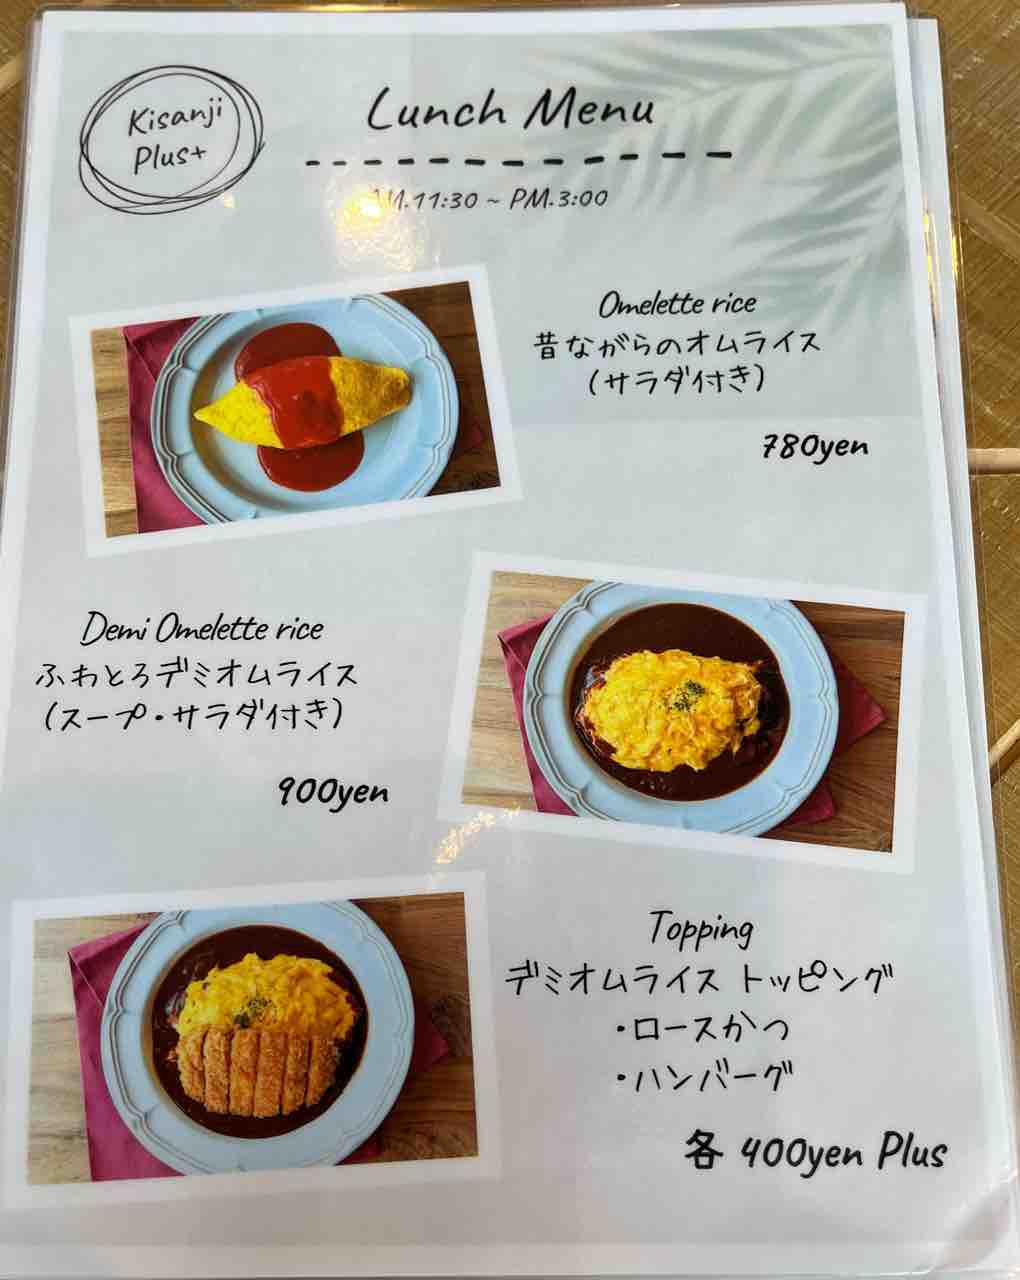 Kisanji
Plus+
Lunch Menu
AM.11:30 ~ PM.3:00
Omelette rice
昔ながらのオムライス
(サラダ付き)
780yen
Demi Omelette rice
ふわとろデミオムライス
(スープ・サラダ付き)
900yen
Topping
デミオムライス トッピング
・ロースかつ
・ハンバーグ
各 400yen Plus